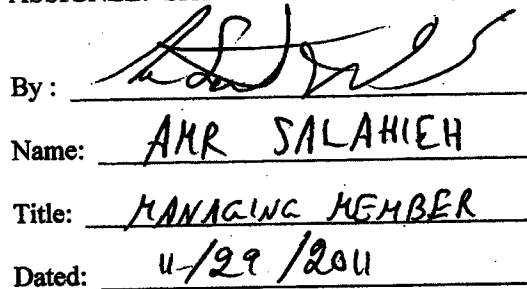 By:
Name: AMR SALAHIEH
Title: MANAGING MEMBER
Dated: 11/29/2011